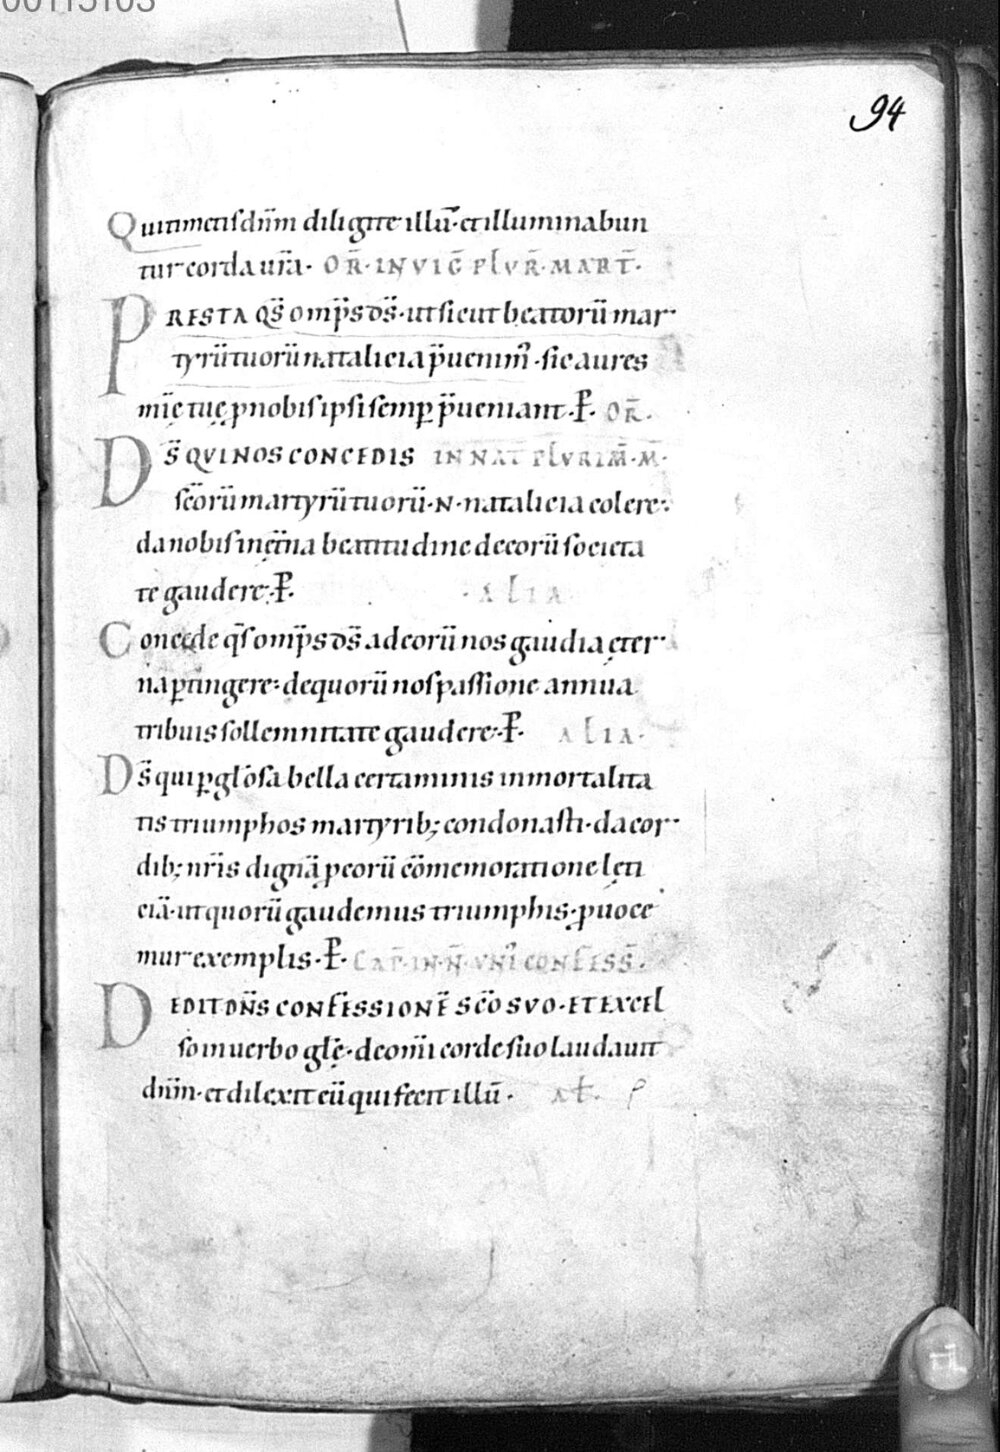 94
Qui timetis dn̄m diligite illū · et illuminabun
tur corda ur̄a · OR̄ · IN VIG̅ PLVR̄ · MART̄ ·
PRESTA QS̄ omp̄s ds̄ · ut sicut beatorū mar
tyrū tuorū natalicia p̄uenim̄ · sic aures
mīę tuę ꝓ nobis ipsi semꝑ p̄ueniant · P̄ · OR̄ ·
DS̄ QVI NOS CONCEDIS IN NAT̄ PLVRIM̄ · M̄ ·
scōrū martyrū tuorū · N · natalicia colere :
da nobis in ęt̄na beatitudine de eorū societa
te gaudere · P̄ · ALIA
Concede qs̄ omp̄s ds̄ ad eorū nos gaudia ęter
na ꝑtingere : de quorū nos passione annua
tribuis sollemnitate gaudere · P̄ · ALIA ·
Ds̄ qui ꝑ glōsa bella certaminis inmortalita
tis triumphos martyrib; condonasti · da cor
dib; nr̄is dignā ꝓ eorū cōmemoratione lęti
ciā · ut quorū gaudemus triumphis · ꝓuoce
mur exemplis · P̄ · CAP̄ · IN · N̄ · VNĪ CONFESS̄ ·
DEDIT DN̄S CONFESSIONĒ SCŌ SVO · ET EXCEL
so in uerbo glę̄ · de om̄i corde suo laudauit
dn̄m · et dilexit eū qui fecit illū · AŁ ·